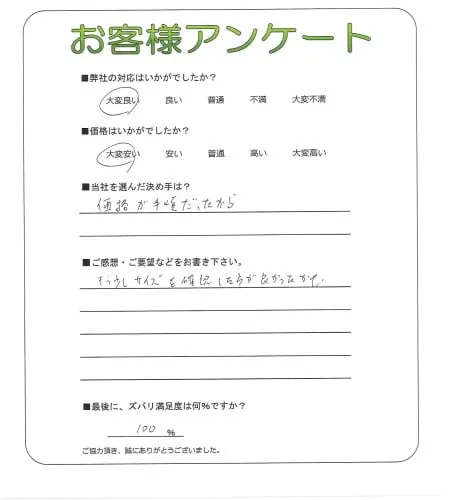 お客様アンケート
■弊社の対応はいかがでしたか？
大変良い 良い 普通 不満 大変不満
■価格はいかがでしたか？
大変安い 安い 普通 高い 大変高い
■当社を選んだ決め手は？
価格が手頃だったから
■ご感想・ご要望などをお書き下さい。
もう少しサイズを確認した方が良かったかな。
■最後に、ズバリ満足度は何%ですか？
100 %
ご協力頂き、誠にありがとうございました。